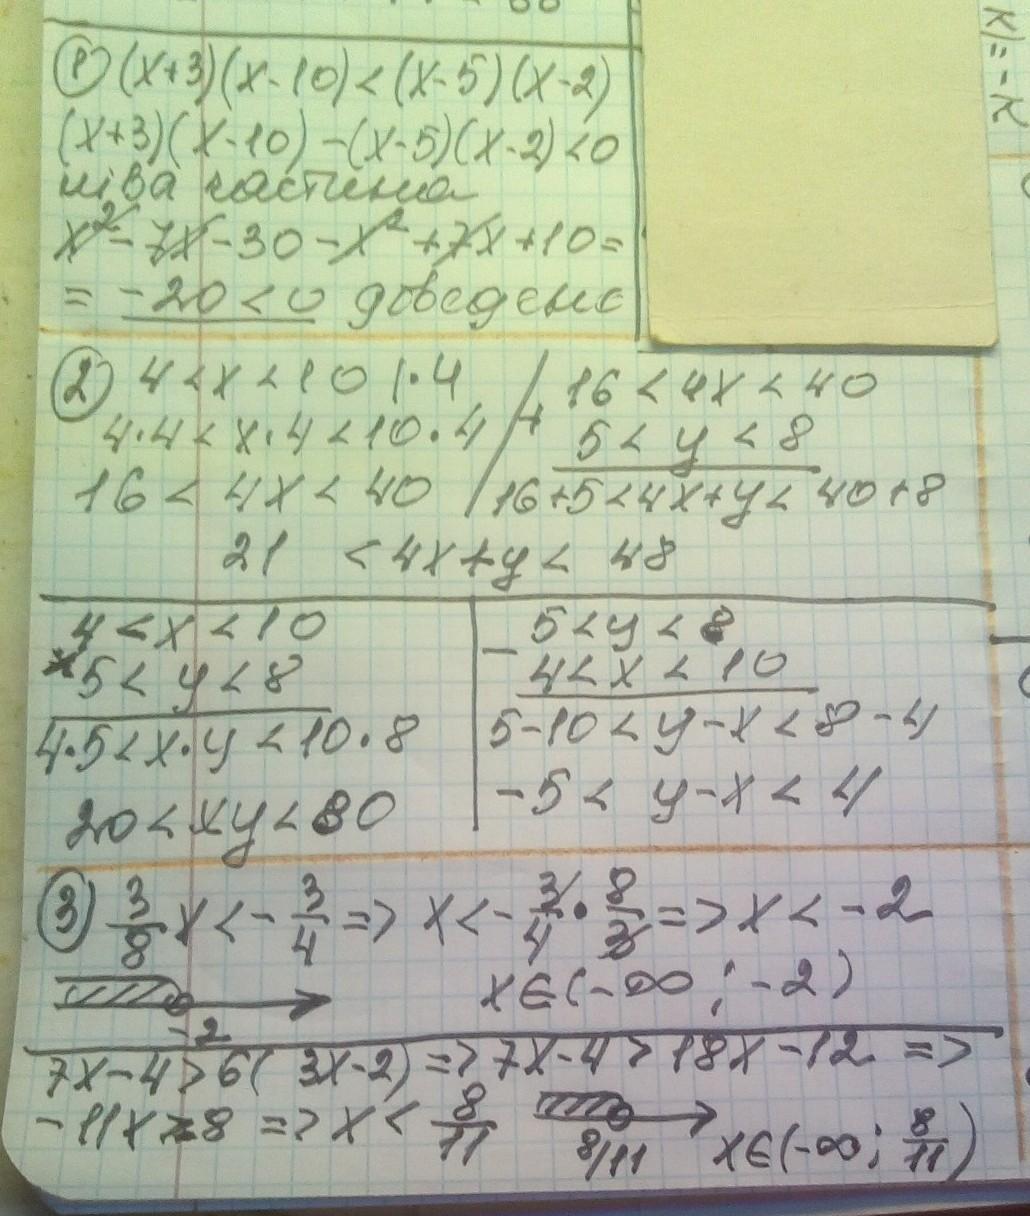 ① (x+3)(x-10)<(x-5)(x-2)
(x+3)(x-10)-(x-5)(x-2)<0
ліва частина
x²-7x-30-x²+7x+10=
= -20<0 доведено
② 4<x<10 |·4
4·4<x·4<10·4
16<4x<40
16<4x<40
+ 5<y<8
16+5<4x+y<40+8
21 <4x+y< 48
4<x<10
× 5<y<8
4·5<x·y<10·8
20<xy<80
- 5<y<8
4<x<10
5-10<y-x<8-4
-5< y-x<4
③ 3/8 x<-3/4 => x<-3/4·8/3 => x<-2
-2
x∈(-∞;-2)
7x-4>6(3x-2) => 7x-4>18x-12 =>
-11x>-8 => x<8/11
8/11
x∈(-∞;8/11)